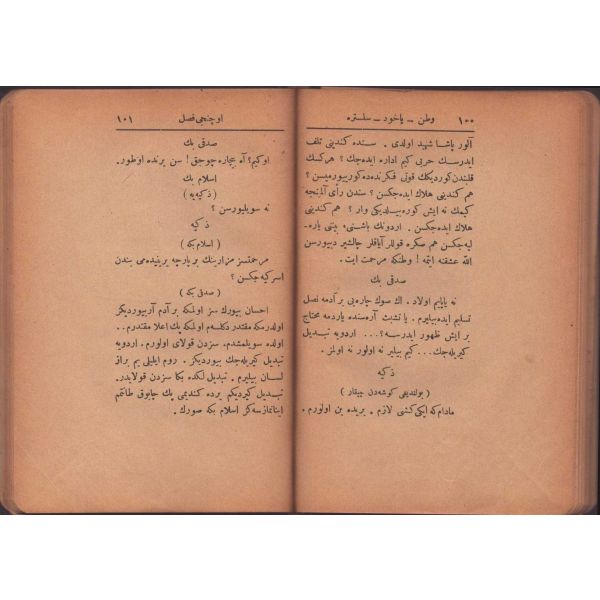 ١٠٠ وطن — یاخود — سلستره
آلور پاشا شهید اولدی . سنده کندینی تلف
ایدرسك حربی کیم اداره ایده‌جك ؟ هرکسك
قلبنده کوردیکك قوتی فکرنده‌ده کوریورمیسن ؟
هم کندینی هلاك ایده‌جکسن ؟ سندن رأی آلمینجه
کیمك نه ایش کوره‌بیلدیکی وار ؟ هم کندینی
هلاك ایده‌جکسن . اردونك باشنی ، بیننی پاره‌-
لیه‌جکسن هم صکره قوللر آیاقلر چالیشیر دییورسن
اللّه عشقنه ایتمه ! وطنکه مرحمت ایت .
صدقی بك
نه یاپایم اولاد . اك صوك چاره‌یی بر آدمه نصل
تسلیم ایده‌بیلیرم . یا تشبث آره‌سنده یاردمه محتاج
بر ایش ظهور ایدرسه ؟ ... اردویه تبدیل
کیریله‌جك ... کیم بیلیر نه اولور نه اولمز .
ذکیه
( بولندیغی کوشه‌دن چیقار )
مادام‌که ایکی کشی لازم . بریده بن اولورم .
اوچنجی فصل ١٠١
صدقی بك
اوکیم ؟ آه بیچاره چوجق ! سن یرنده اوطور .
اسلام بك
( ذکیه‌یه )
نه سویلیورسن ؟
ذکیه
( اسلام بکه )
مرحمتسز مزارینك بر پارچه یرینی‌ده‌می بندن
اسرکیه‌جکسن ؟
( صدقی بکه )
احسان بیورك سز اولمکه بر آدم آرییوردیکز
اولدرمکه مقتدر دکلسه‌م اولمکه پك اعلا مقتدرم ..
اولده سویلمشدم . سزدن قولای اولورم . اردویه
تبدیل کیریله‌جك بیوردیکز . روم ایلیلی یم براز
لسان بیلیرم . تبدیل لکده بکا سزدن قولایدر .
تبدیل کیردیکم یرده کندیمی پك چابوق طانتم
اینانمازسه‌کز اسلام بکه صورك .